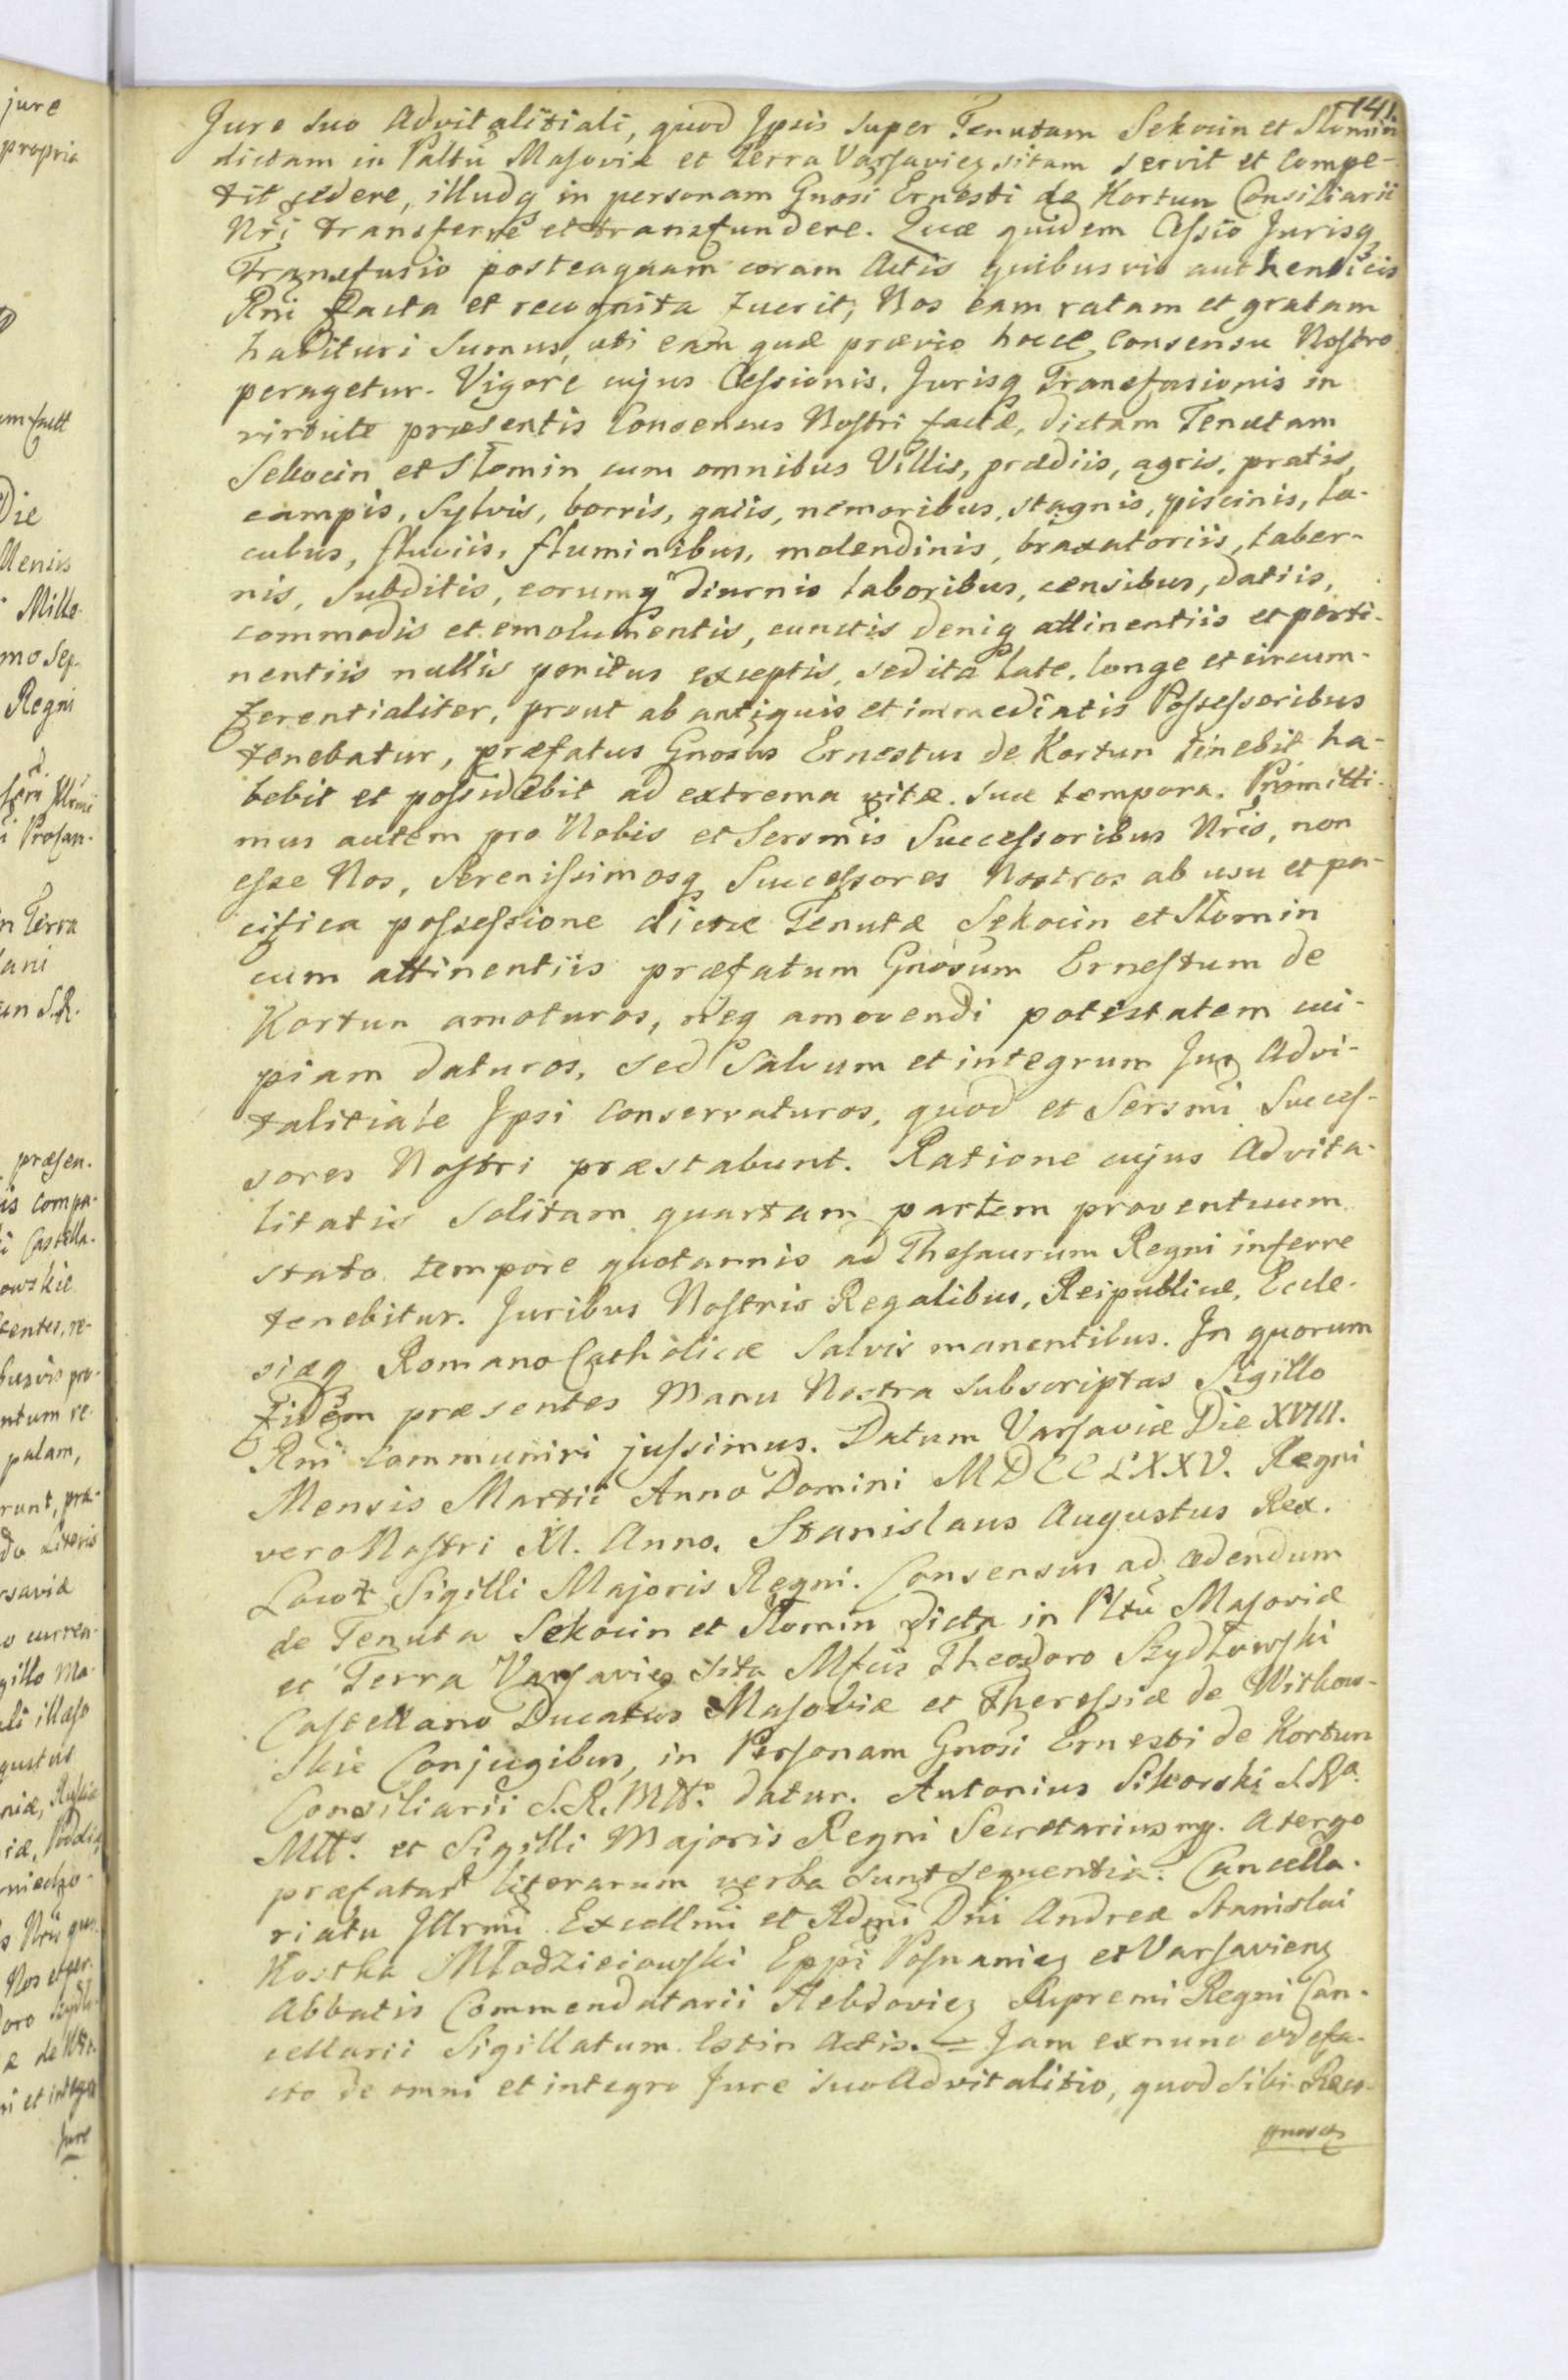 141.
Jure suo Advitalitiali, quod Ipsis super Tenutam Sekocin et Słomin
dictam in Paltũ Masoviæ et Terra Varsavien sitam servit et compe-
tit cedere, illudq in personam Gnosi Ernesti de Kortun Consiliarii
Nri transferre et transfundere. Quæ quidem Cessio Jurisq
Transfusio posteaquam coram Actis quibusvis authenticis
Rni facta et recognita fuerit, Nos eam ratam et gratam
habituri sumus, uti eam quæ prævio hocce Consensu Nostro
peragetur. Vigore cujus Cessionis, Jurisq Transfusionis in
virtute præsentis Consensus Nostri factæ, dictam Tenutam
Sekocin et Słomin cum omnibus Villis, prædiis, agris, pratis,
campis, Sylvis, borris, gaiis, nemoribus, stagnis, piscinis, la-
cubus, fluviis, fluminibus, molendinis, braxatoriis, taber-
nis, Subditis, eorumq diurnis laboribus, censibus, datiis,
commodis et emolumentis, cunctis deniq attinentiis et perti-
nentiis nullis penitus exceptis, sed ita late, longe et circum-
ferentialiter, prout ab antiquis et immediatis Possessoribus
tenebatur, præfatus Gnosus Ernestus de Kortun tenebit ha-
bebit et possidebit ad extrema vitæ suæ tempora. Promitti-
mus autem pro Nobis et Sersmis Successoribus Nris, non
esse Nos, Serenissimosq Successores Nostros ab usu et pa-
cifica possessione dictæ Tenutæ Sekocin et Słomin
cum attinentiis præfatum Gnosum Ernestum de
Kortun amoturos, neq amovendi potestatem cui-
piam daturos, sed Salvum et integrum Jus Advi-
talitiale Ipsi conservaturos, quod et Sersmi Succes-
sores Nostri præstabunt. Ratione cujus Advita-
litatis solitam quartam partem proventuum
stato tempore quotannis ad Thesaurum Regni inferre
tenebitur. Juribus Nostris Regalibus, Reipublicæ, Eccle-
siæq Romano Catholicæ Salvis manentibus. In quorum
Fidem præsentes Manu Nostra subscriptas Sigillo
Rni communiri jussimus. Datum Varsaviæ Die XVIII.
Mensis Martii Anno Domini MDCCLXXV. Regni
vero Nostri XI. Anno. Stanislaus Augustus Rex.
Locus Sigilli Majoris Regni. Consensus ad cedendum
de Tenuta Sekocin et Słomin dicta in Pltũ Masoviæ
et Terra Varsavien sita Mfcis Theodoro Szydłowski
Castellano Ducatus Masoviæ et Theressiæ de Witkow-
skie Conjugibus, in Personam Gnosi Ernesti de Kortun
Consiliarii S.R.Mtt. datur. Antonius Sikorski S.R.
Mtt. et Sigilli Majoris Regni Secretarius mp. Atergo
præfatar literarum verba sunt sequentia. Cancella-
riatu Illrmi Excellmi et Rdmi Dni Andreæ Stanislai
Kostka Młodzieiowski Eppi Posnanien et Varsavien
Abbatis Commendatarii Hebdovien Supremi Regni Can-
cellarii Sigillatum Est in Actis. = Jam ex nunc et defa-
cto de omni et integro Jure suo Advitalitio, quod sibi Reco-
gnoscen